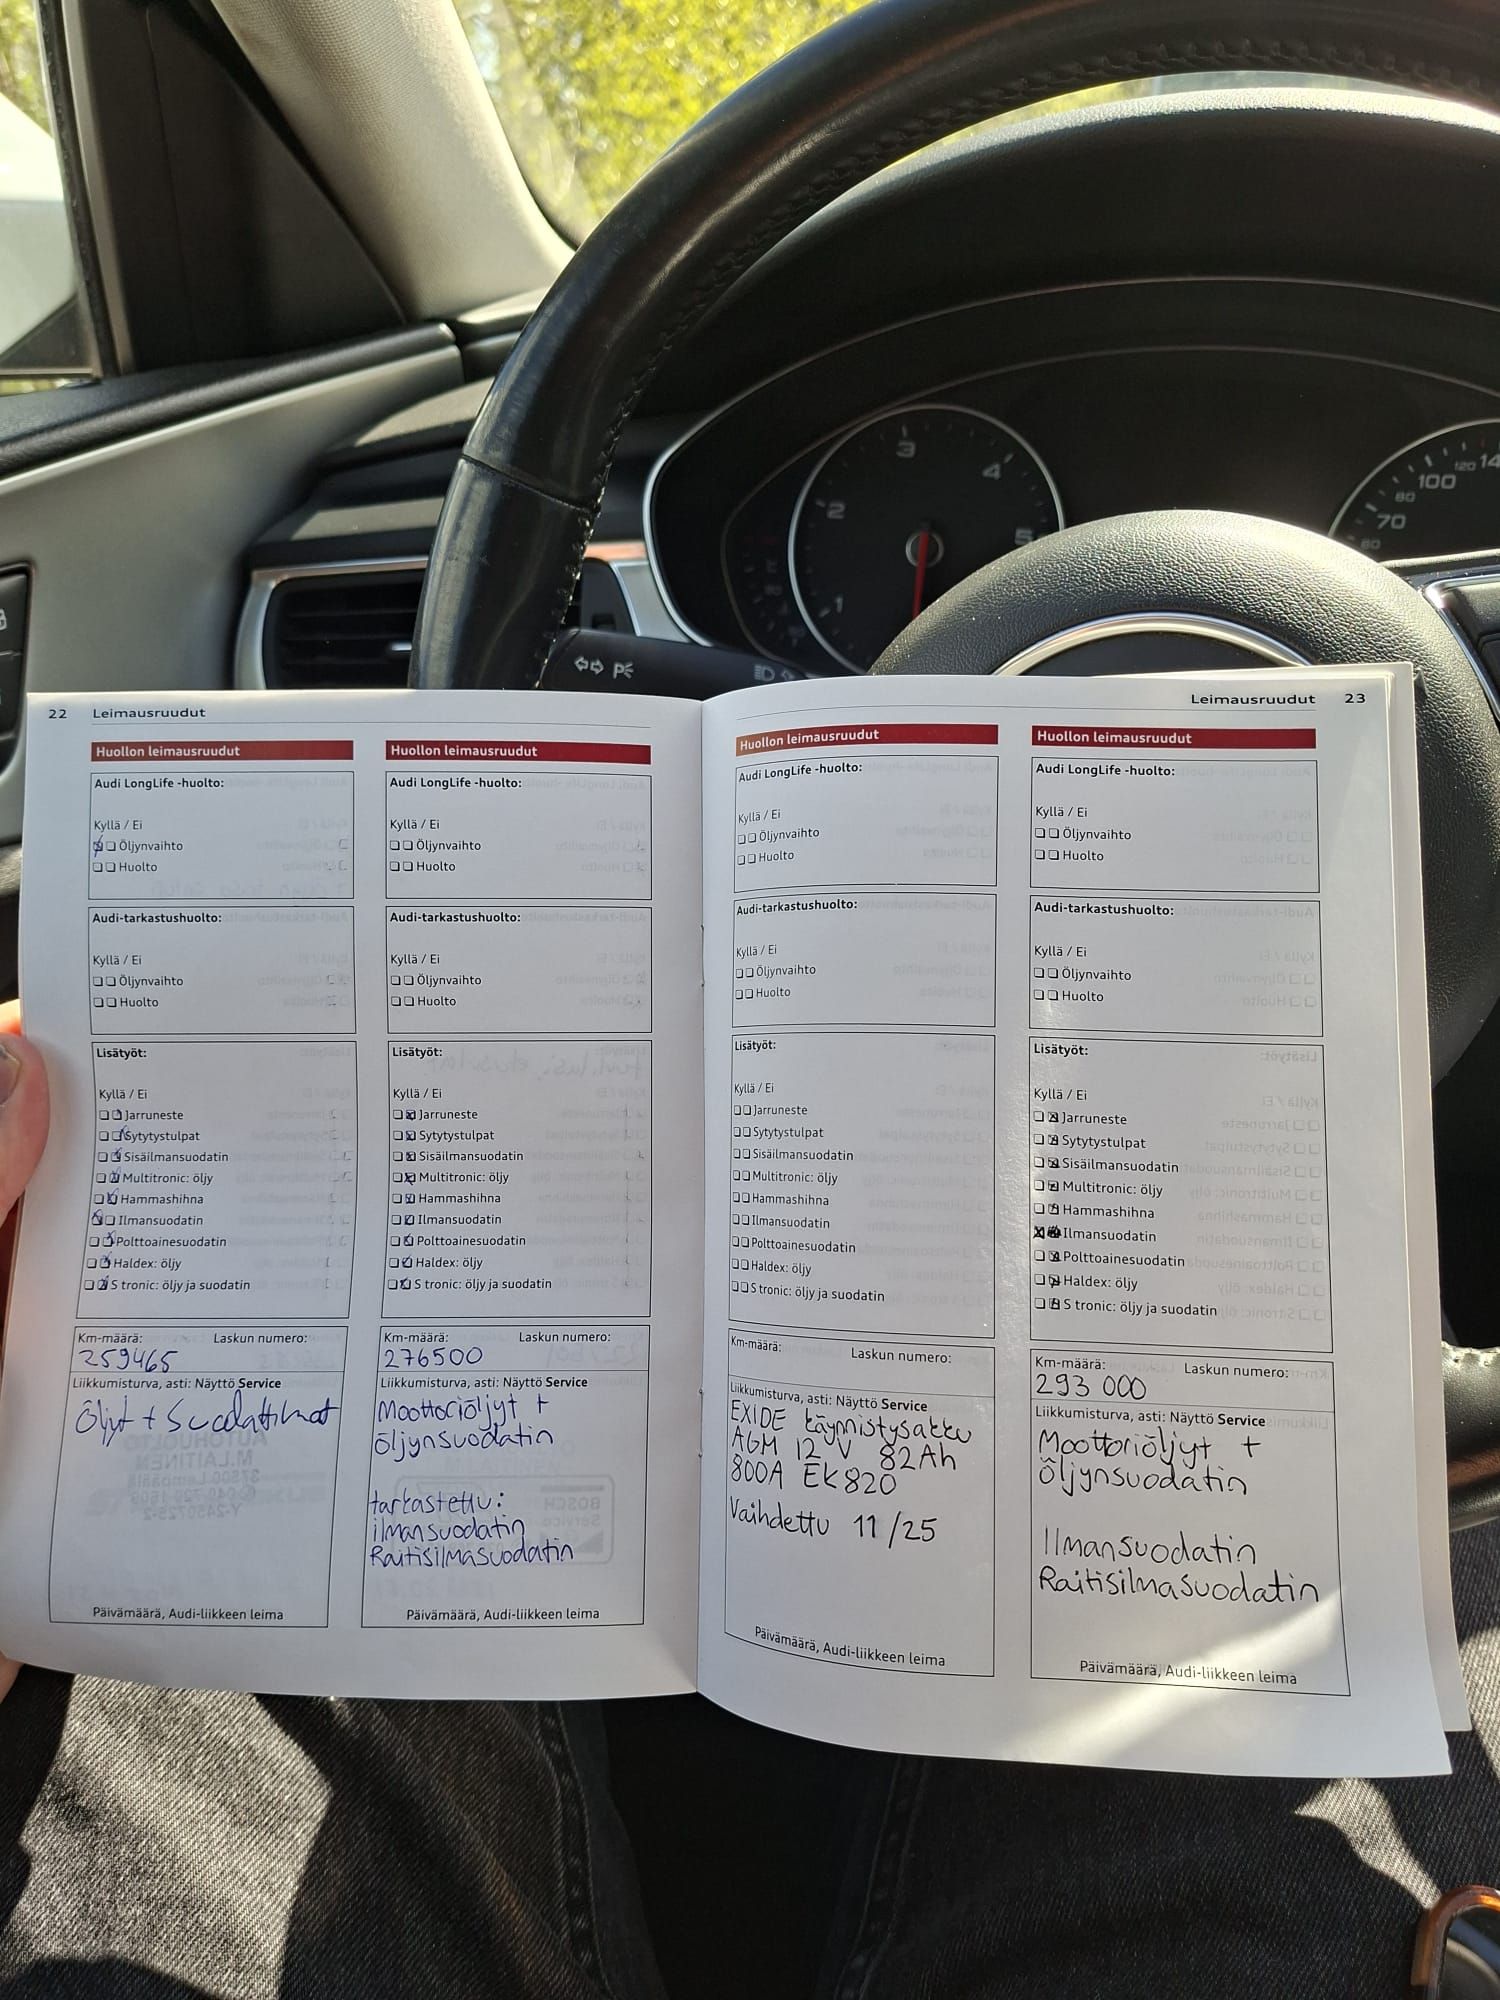 3
4
2
5
1
140
120
100
80
70
60
22 Leimausruudut
Huollon leimausruudut
Audi LongLife -huolto:
Kyllä / Ei
Öljynvaihto
Huolto
Audi-tarkastushuolto:
Kyllä / Ei
Öljynvaihto
Huolto
Lisätyöt:
Kyllä / Ei
Jarruneste
Sytytystulpat
Sisäilmansuodatin
Multitronic: öljy
Hammashihna
Ilmansuodatin
Polttoainesuodatin
Haldex: öljy
S tronic: öljy ja suodatin
Km-määrä: Laskun numero:
259465
Liikkumisturva, asti: Näyttö Service
Öljyt + Suodattimet
Päivämäärä, Audi-liikkeen leima
Huollon leimausruudut
Audi LongLife -huolto:
Kyllä / Ei
Öljynvaihto
Huolto
Audi-tarkastushuolto:
Kyllä / Ei
Öljynvaihto
Huolto
Lisätyöt:
Kyllä / Ei
Jarruneste
Sytytystulpat
Sisäilmansuodatin
Multitronic: öljy
Hammashihna
Ilmansuodatin
Polttoainesuodatin
Haldex: öljy
S tronic: öljy ja suodatin
Km-määrä: Laskun numero:
276500
Liikkumisturva, asti: Näyttö Service
Moottoriöljyt +
öljynsuodatin
tarkastettu:
ilmansuodatin
Raitisilmasuodatin
Päivämäärä, Audi-liikkeen leima
Leimausruudut 23
Huollon leimausruudut
Audi LongLife -huolto:
Kyllä / Ei
Öljynvaihto
Huolto
Audi-tarkastushuolto:
Kyllä / Ei
Öljynvaihto
Huolto
Lisätyöt:
Kyllä / Ei
Jarruneste
Sytytystulpat
Sisäilmansuodatin
Multitronic: öljy
Hammashihna
Ilmansuodatin
Polttoainesuodatin
Haldex: öljy
S tronic: öljy ja suodatin
Km-määrä: Laskun numero:
Liikkumisturva, asti: Näyttö Service
EXIDE käynnistysakku
AGM 12 V 82Ah
800A EK820
Vaihdettu 11/25
Päivämäärä, Audi-liikkeen leima
Huollon leimausruudut
Audi LongLife -huolto:
Kyllä / Ei
Öljynvaihto
Huolto
Audi-tarkastushuolto:
Kyllä / Ei
Öljynvaihto
Huolto
Lisätyöt:
Kyllä / Ei
Jarruneste
Sytytystulpat
Sisäilmansuodatin
Multitronic: öljy
Hammashihna
Ilmansuodatin
Polttoainesuodatin
Haldex: öljy
S tronic: öljy ja suodatin
Km-määrä: Laskun numero:
293 000
Liikkumisturva, asti: Näyttö Service
Moottoriöljyt +
öljynsuodatin
Ilmansuodatin
Raitisilmasuodatin
Päivämäärä, Audi-liikkeen leima